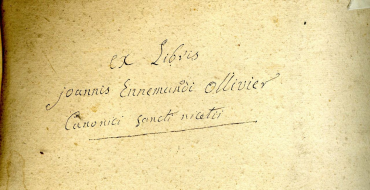 ex Libris
joannis Ennemundi Ollivier
Canonici Sancti nicetii